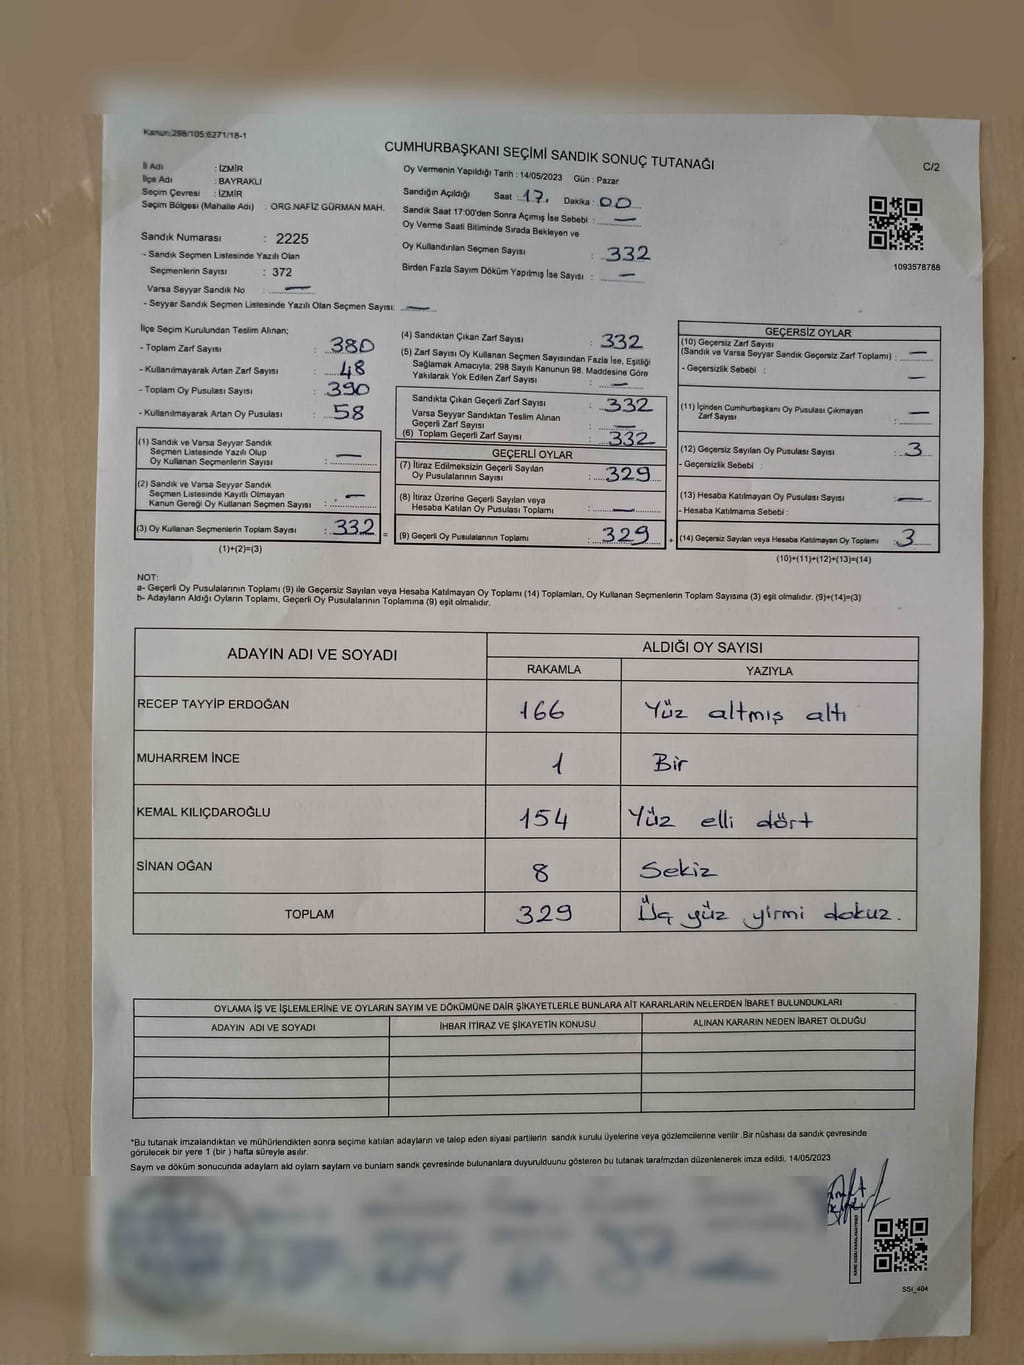 Kanun:298/105;6271/18-1
CUMHURBAŞKANI SEÇİMİ SANDIK SONUÇ TUTANAĞI
C/2
İl Adı : İZMİR
İlçe Adı : BAYRAKLI
Seçim Çevresi : İZMİR
Seçim Bölgesi (Mahalle Adı) : ORG.NAFİZ GÜRMAN MAH.
Sandık Numarası : 2225
- Sandık Seçmen Listesinde Yazılı Olan
Seçmenlerin Sayısı : 372
Varsa Seyyar Sandık No : —
- Seyyar Sandık Seçmen Listesinde Yazılı Olan Seçmen Sayısı: —
Oy Vermenin Yapıldığı Tarih : 14/05/2023 Gün : Pazar
Sandığın Açıldığı Saat : 17. Dakika : 00
Sandık Saat 17:00'den Sonra Açımış İse Sebebi : —
Oy Verme Saati Bitiminde Sırada Bekleyen ve
Oy Kullandırılan Seçmen Sayısı : 332
Birden Fazla Sayım Döküm Yapılmış İse Sayısı : —
1093578788
İlçe Seçim Kurulundan Teslim Alınan;
- Toplam Zarf Sayısı : 380
- Kullanılmayarak Artan Zarf Sayısı : 48
- Toplam Oy Pusulası Sayısı : 390
- Kullanılmayarak Artan Oy Pusulası : 58
(1) Sandık ve Varsa Seyyar Sandık
Seçmen Listesinde Yazılı Olup
Oy Kullanan Seçmenlerin Sayısı : —
(2) Sandık ve Varsa Seyyar Sandık
Seçmen Listesinde Kayıtlı Olmayan
Kanun Gereği Oy Kullanan Seçmen Sayısı : —
(3) Oy Kullanan Seçmenlerin Toplam Sayısı : 332 =
(1)+(2)=(3)
(4) Sandıktan Çıkan Zarf Sayısı : 332
(5) Zarf Sayısı Oy Kullanan Seçmen Sayısından Fazla İse, Eşitliği
Sağlamak Amacıyla, 298 Sayılı Kanunun 98. Maddesine Göre
Yakılarak Yok Edilen Zarf Sayısı : —
Sandıkta Çıkan Geçerli Zarf Sayısı : 332
Varsa Seyyar Sandıktan Teslim Alınan
Geçerli Zarf Sayısı : —
(6) Toplam Geçerli Zarf Sayısı : 332
GEÇERLİ OYLAR
(7) İtiraz Edilmeksizin Geçerli Sayılan
Oy Pusulalarının Sayısı : 329
(8) İtiraz Üzerine Geçerli Sayılan veya
Hesaba Katılan Oy Pusulası Toplamı : —
(9) Geçerli Oy Pusulalarının Toplamı : 329 +
GEÇERSİZ OYLAR
(10) Geçersiz Zarf Sayısı
(Sandık ve Varsa Seyyar Sandık Geçersiz Zarf Toplamı) : —
- Geçersizlik Sebebi : —
(11) İçinden Cumhurbaşkanı Oy Pusulası Çıkmayan
Zarf Sayısı : —
(12) Geçersiz Sayılan Oy Pusulası Sayısı : 3
- Geçersizlik Sebebi :
(13) Hesaba Katılmayan Oy Pusulası Sayısı : —
- Hesaba Katılmama Sebebi :
(14) Geçersiz Sayılan veya Hesaba Katılmayan Oy Toplamı : 3
(10)+(11)+(12)+(13)=(14)
NOT:
a- Geçerli Oy Pusulalarının Toplamı (9) ile Geçersiz Sayılan veya Hesaba Katılmayan Oy Toplamı (14) Toplamları, Oy Kullanan Seçmenlerin Toplam Sayısına (3) eşit olmalıdır. (9)+(14)=(3)
b- Adayların Aldığı Oyların Toplamı, Geçerli Oy Pusulalarının Toplamına (9) eşit olmalıdır.
ADAYIN ADI VE SOYADI ALDIĞI OY SAYISI
RAKAMLA YAZIYLA
RECEP TAYYİP ERDOĞAN 166 Yüz altmış altı
MUHARREM İNCE 1 Bir
KEMAL KILIÇDAROĞLU 154 Yüz elli dört
SİNAN OĞAN 8 Sekiz
TOPLAM 329 Üç yüz yirmi dokuz.
OYLAMA İŞ VE İŞLEMLERİNE VE OYLARIN SAYIM VE DÖKÜMÜNE DAİR ŞİKAYETLERLE BUNLARA AİT KARARLARIN NELERDEN İBARET BULUNDUKLARI
ADAYIN ADI VE SOYADI İHBAR İTİRAZ VE ŞİKAYETİN KONUSU ALINAN KARARIN NEDEN İBARET OLDUĞU
*Bu tutanak imzalandıktan ve mühürlendikten sonra seçime katılan adayların ve talep eden siyasi partilerin sandık kurulu üyelerine veya gözlemcilerine verilir .Bir nüshası da sandık çevresinde
görülecek bir yere 1 (bir ) hafta süreyle asılır.
Saym ve döküm sonucunda adaylarn ald oylarn saylarn ve bunlarn sandk çevresinde bulunanlara duyurulduunu gösteren bu tutanak tarafmzdan düzenlenerek imza edildi. 14/05/2023
SSI_404